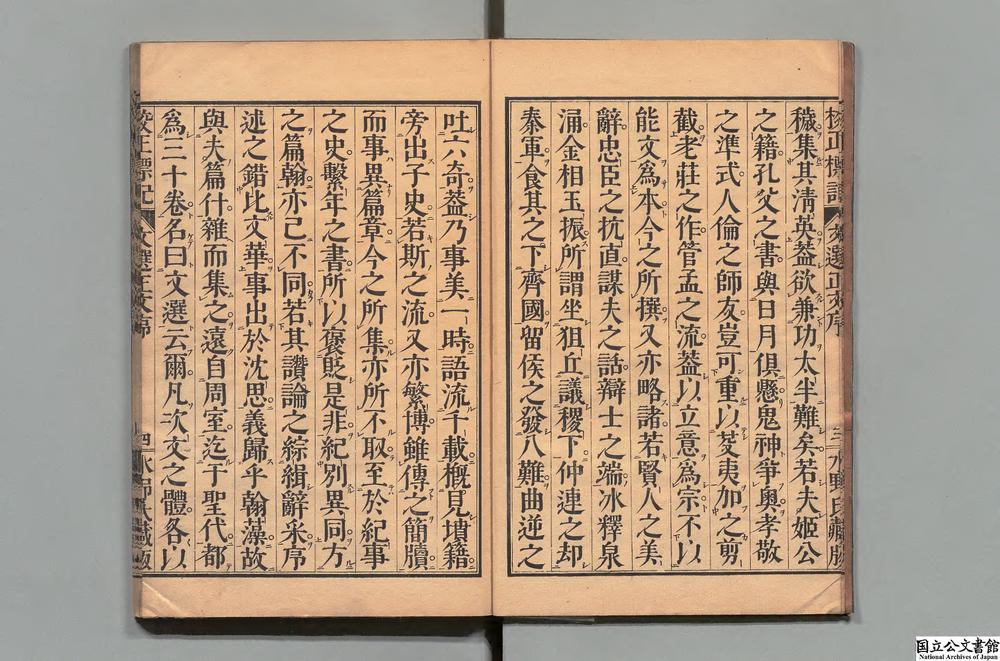 文選正文序 三 水野氏藏版
穢集其清英葢欲兼功太半難矣若夫姬公
之籍孔父之書與日月俱懸鬼神爭奥孝敬
之準式人倫之師友豈可重以芟夷加之剪
截老莊之作管孟之流葢以立意爲宗不以
能文爲本今之所撰又亦略諸若賢人之美
辭忠臣之抗直謀夫之話辯士之端冰釋泉
涌金相玉振所謂坐狙丘議稷下仲連之却
秦軍食其之下齊國留侯之發八難曲逆之
吐六奇葢乃事美一時語流千載概見墳籍
旁出子史若斯之流又亦繁博雖傳之簡牘
而事異篇章今之所集亦所不取至於紀事
之史繫年之書所以褒貶是非紀別異同方
之篇翰亦已不同若其讚論之綜緝辭采序
述之錯比文華事出於沈思義歸乎翰藻故
與夫篇什雜而集之遠自周室迄于聖代都
爲三十卷名曰文選云爾凡次文之體各以
挍正標記 文選正文序 四
国立公文書館
National Archives of Japan